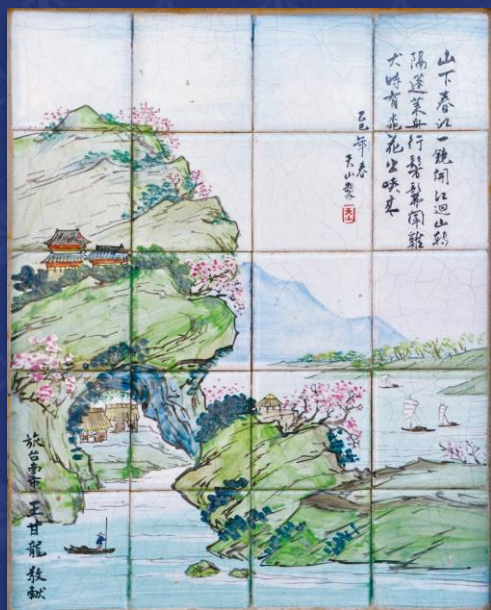 山下春江一鏡開江迴山轉
隔蓬萊舟行髣髴聞雞
犬時有飛花出峽來
乙巳年春
天山繁
天山
旅台南市 王甘龍 敬獻